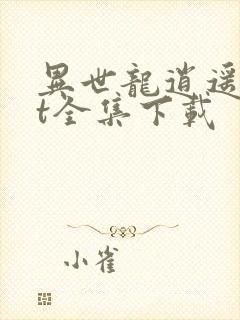 異世龍逍遥
t全集下載
小雀